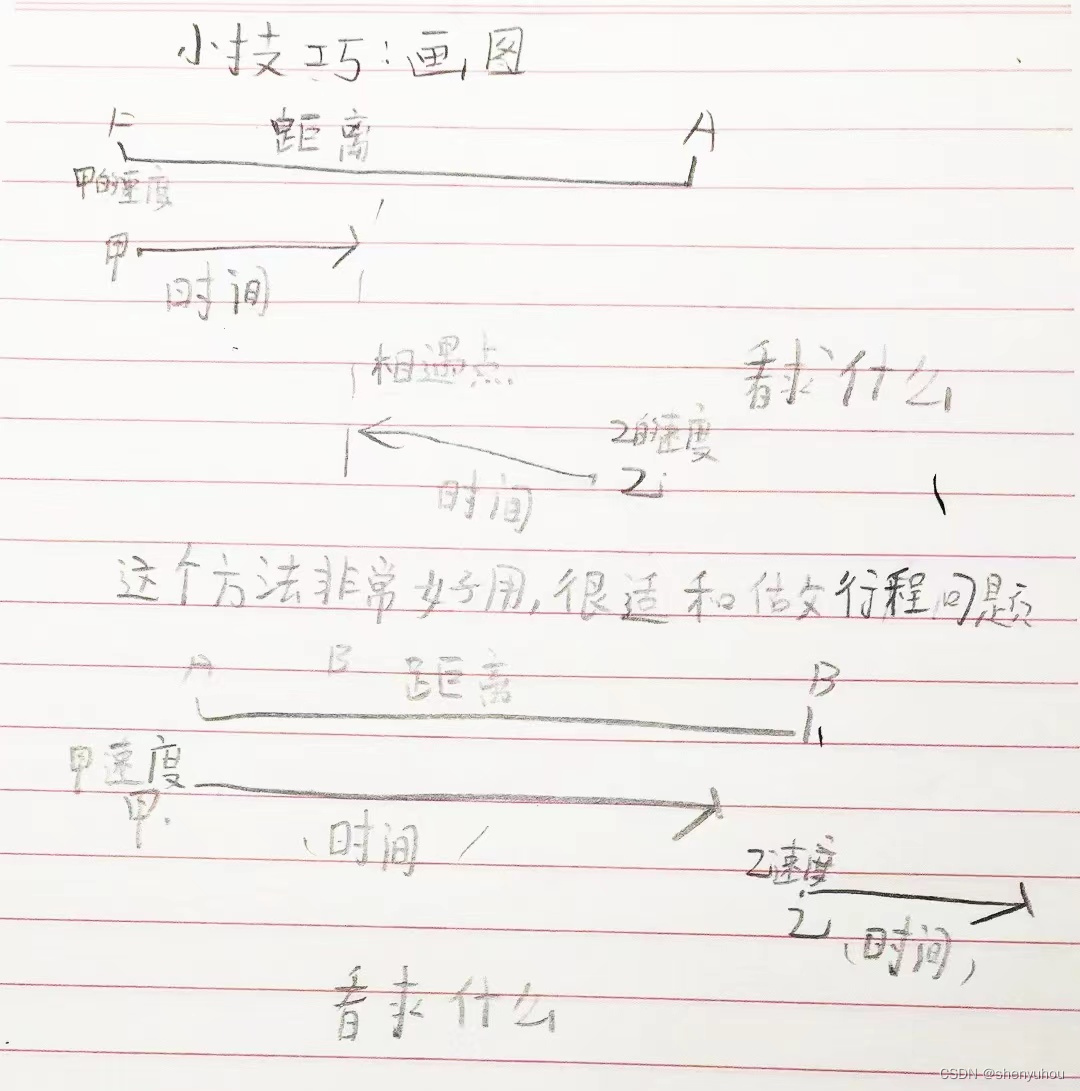 小技巧:画图
F 距离 A
甲的速度
甲
时间
相遇点
看求什么
乙的速度
乙
时间
这个方法非常好用,很适和估文行程问题
A B 距离 B
甲速度
甲.
(时间
乙速度
乙
(时间)
看求什么
CSDN @shenyuhou